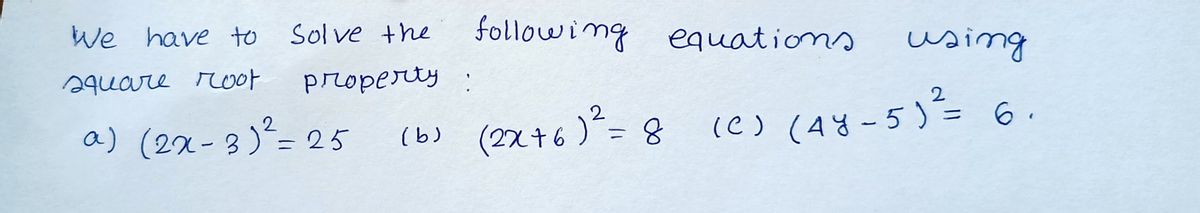 We have to Solve the following equations using
square root property :
a) (2x-3)²= 25 (b) (2x+6)²= 8 (c) (4y-5)²= 6.